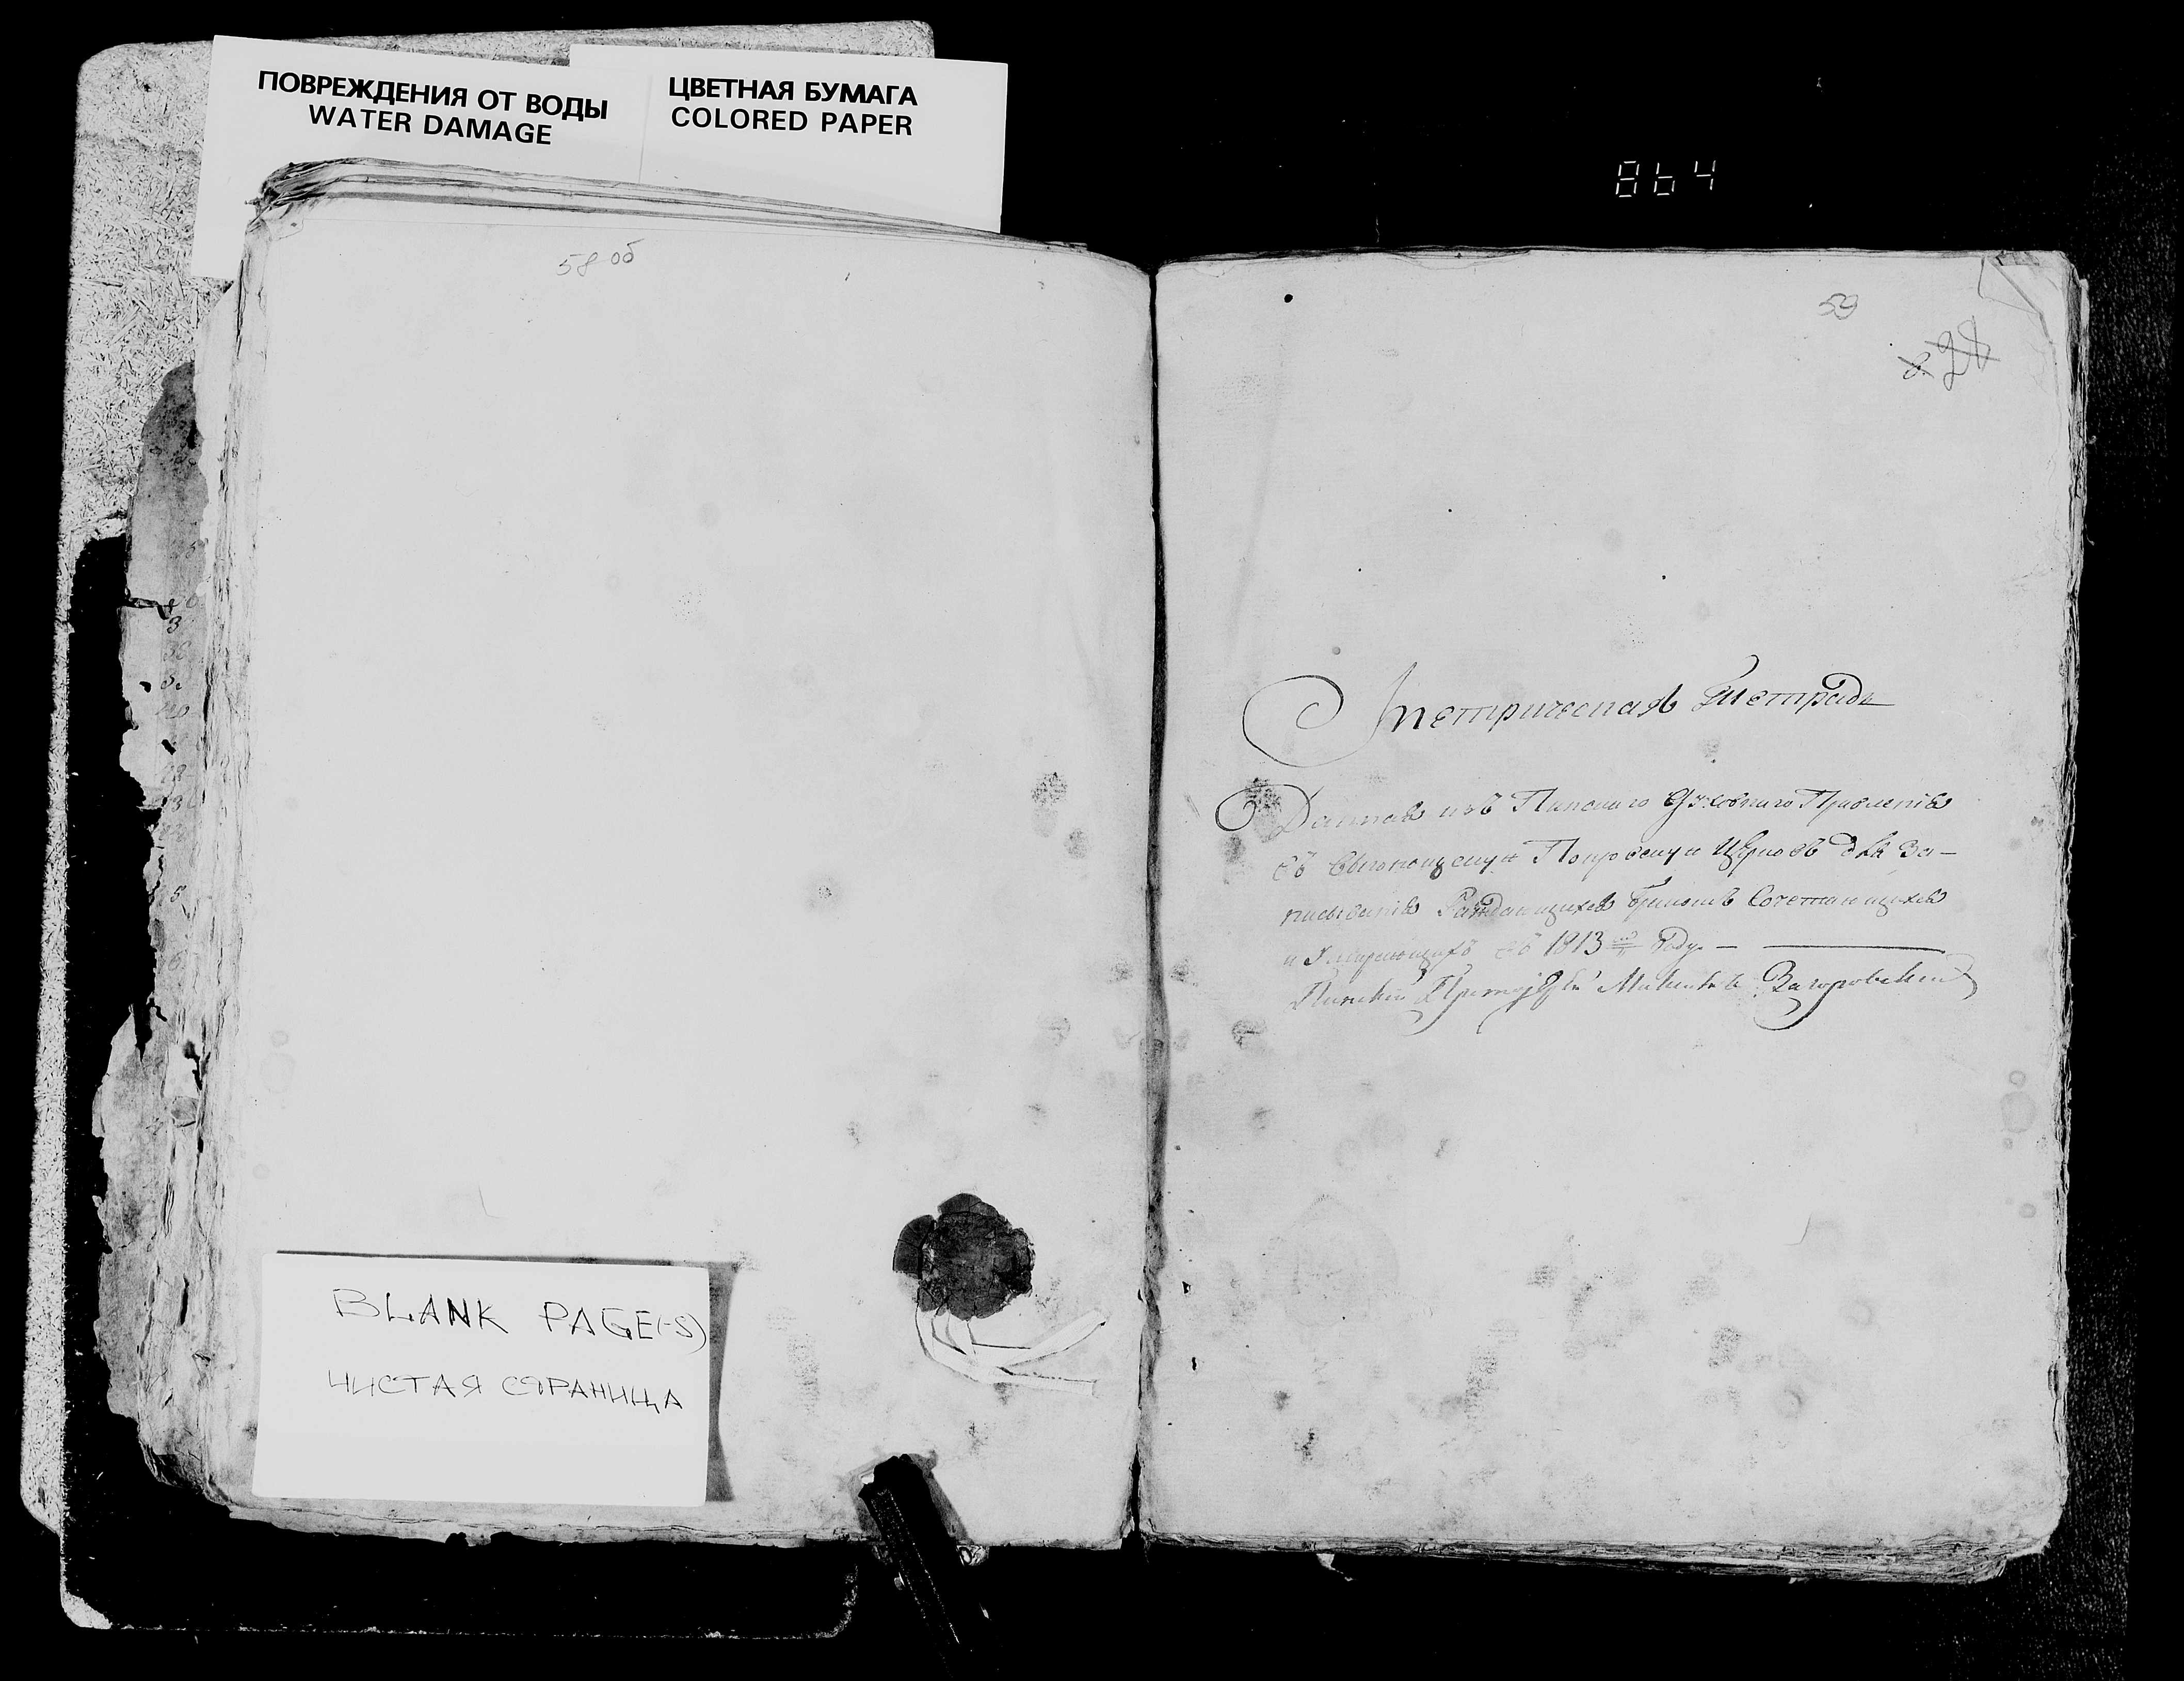 ПОВРЕЖДЕНИЯ ОТ ВОДЫ
WATER DAMAGE
ЦВЕТНАЯ БУМАГА
COLORED PAPER
864
58 об
59
28
Метрическая Тетрадь
Данная изъ Пинскаго Духовнаго Правленія
въ Покровскую Церковь для За-
писыванія Раждающихся Бракомъ Сочетающихся
и Умирающихъ въ 1813 Году —
Пинскій Загоровскій
BLANK PAGE(-S)
ЧИСТАЯ СТРАНИЦА